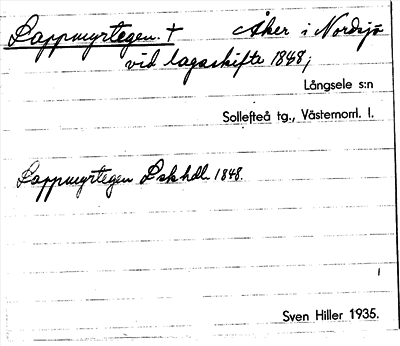 Lappmyrtegen. † Åker i Nordsjö
vid lagaskifte 1848;
Långsele s:n
Sollefteå tg., Västernorrl. l.
Lappmyrtegen Lsk hdl. 1848.
Sven Hiller 1935.